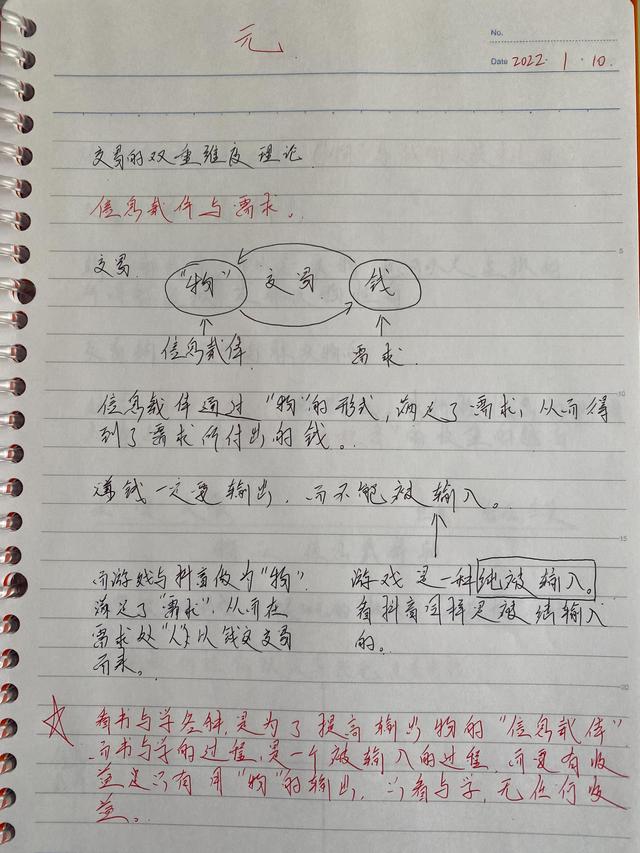 元
No.
Date 2022. 1. 10.
交易的双重维度理论
信息载体与需求。
交易
"物" 交易 钱
信息载体 需求
信息载体通过"物"的形式,满足了需求,从而得
到了需求所付出的钱。
赚钱一定要输出,而不能被输入。
而游戏与抖音做为"物".
满足了"需求",从而在
需求处"人"以钱交交易
而来。
游戏是一种纯被输入。
看抖音同样是被纯输入
的。
☆ 看书与学各种,是为了提高输出物的"信息载体"
而书与学的过程,是一个被输入的过程,而要有收
益是只有用"物"的输出,只看与学,无任何收
益。
5
10
15
20